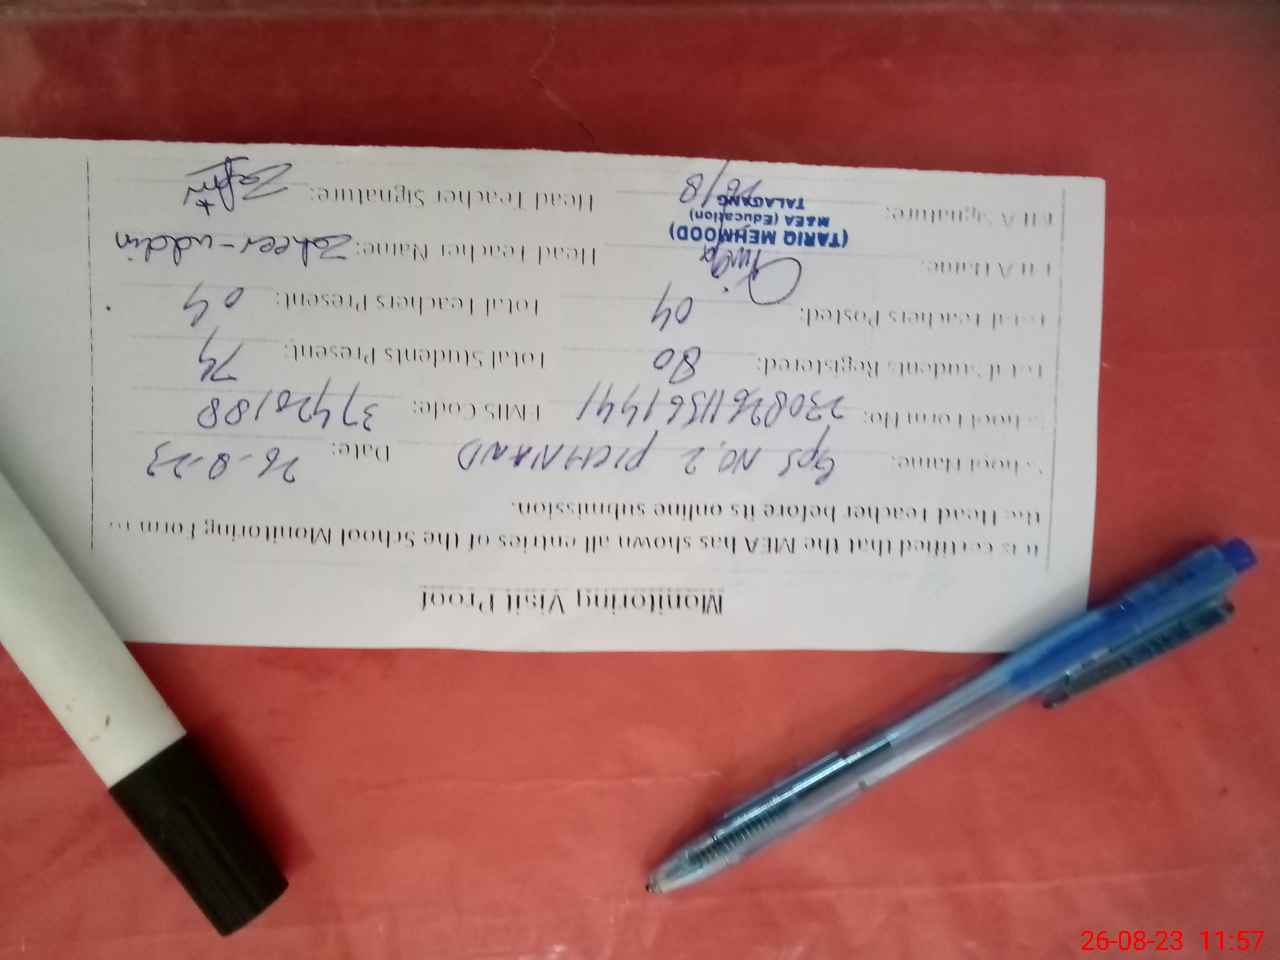 Monitoring Visit Proof
It is certified that the MEA has shown all entries of the School Monitoring Form to
the Head Teacher before its online submission.
School Name: GPS NO, 2 PICHNAND Date: 26-8-23
School Form No: EMIS Code: 37420188
Total Students Registered: 80 Total Students Present: 74
Total Teachers Posted: 04 Total Teachers Present: 04
MEA Name: Head Teacher Name: Zaheer-uddin
(TARIQ MEHMOOD)
M&EA (Education)
TALAGANG
MEA Signature: 26/8 Head Teacher Signature:
26-08-23 11:57